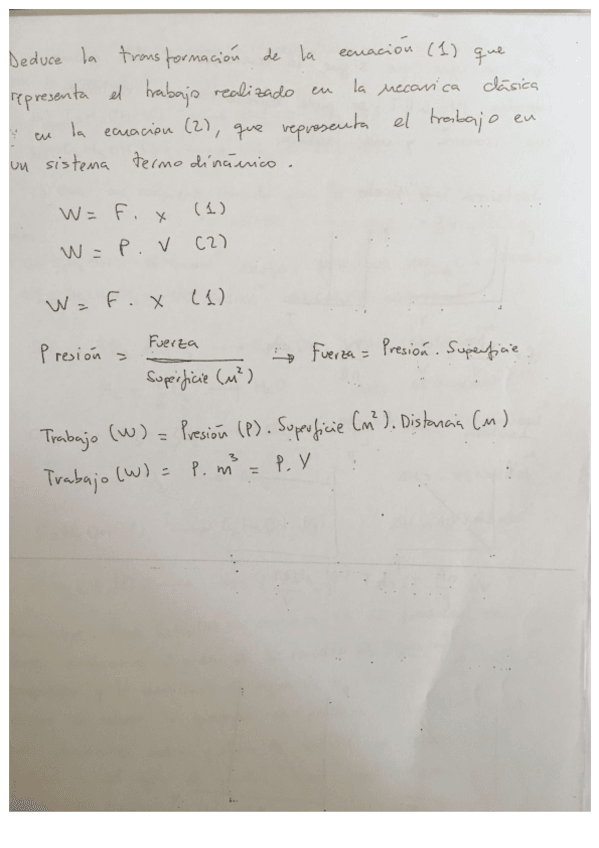 Deduce la transformación de la ecuación (1) que
representa el trabajo realizado en la mecanica clásica
en la ecuacion (2), que representa el trabajo en
un sistema termodinámico.
W = F. x (1)
W = P. V (2)
W = F. x (1)
Presión = Fuerza / Superficie (m²) → Fuerza = Presión. Superficie
Trabajo (W) = Presión (P). Superficie (m²). Distancia (m)
Trabajo (W) = P. m³ = P. V